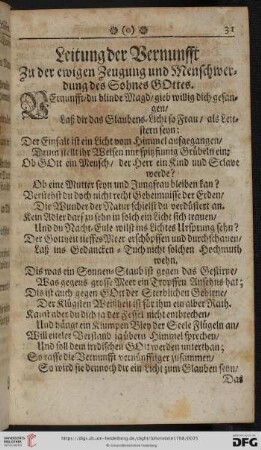 (o) 31
Leitung der Vernunfft
Zu der ewigen Zeugung und Menschwer-
dung des Sohnes GOttes.
VErnunfft/ du blinde Magd/ gieb willig dich gefan-
gen/
Laß dir das Glaubens-Licht so Frau/ als Leit-
stern seyn:
Der Einfalt ist ein Licht vom Himmel aufgegangen/
Drum stellt der Weisen nur spitzfündig Grübeln ein;
Ob GOtt ein Mensch/ der Herr ein Kind und Sclave
werde?
Ob eine Mutter seyn und Jungfrau bleiben kan?
Verstehst du doch nicht recht Geheimnisse der Erden/
Die Wunder der Natur schielst du verdüstert an.
Kein Adler darf zu sehn in solch ein Licht sich trauen/
Und du Nacht-Eule wilst ins Lichtes Ursprung sehn?
Der Gottheit tieffes Meer erschöpffen und durchschauen/
Laß ins Gedancken-Buch nicht solchen Hochmuth
wehn,
Dis was ein Sonnen-Staub ist gegen das Gestirne/
Was gegens grosse Meer ein Tropffen Ansehns hat;
Dis ist auch gegen GOtt der Sterblichen Gehirne/
Der Klügsten Weisheit ist für ihm ein alber Rath.
Kanst aber du dich ja der Fessel nicht entbrechen/
Und hängt ein Klumpen Bley der Seele Flügeln an/
Will eiteler Verstand zu übern Himmel sprechen/
Und soll dem irrdischen GOtt werden unterthan;
So raffe die Vernunfft vernünfftiger zusammen/
So wird sie dennoch dir ein Licht zum Glauben seyn/
Das
https://digi.ub.uni-heidelberg.de/diglit/lohenstein1708/0315
© Universitätsbibliothek Heidelberg
UNIVERSITÄTS-
BIBLIOTHEK
HEIDELBERG
Gefördert durch die
DFG